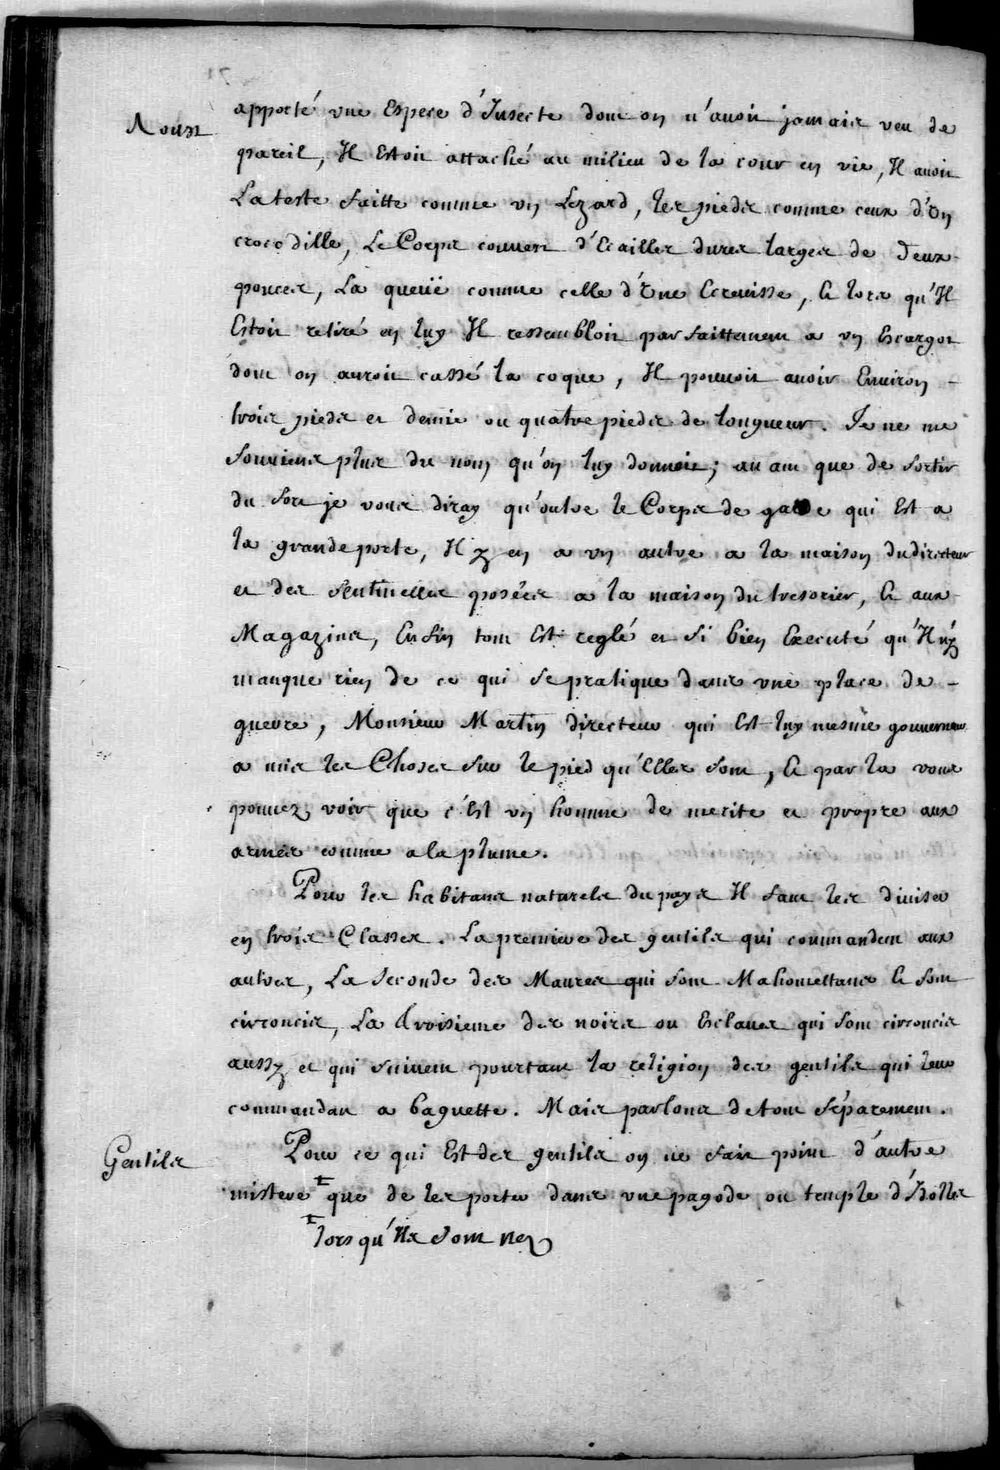 apporté vne Espece d'Insecte dont on n'auoit jamais veu de
pareil, Il Estoit attaché au milieu de la cour en vie, Il auoit
La teste faitte comme vn Lezard, les pieds comme ceux d'vn
crocodille, Le Corps couuert d'Ecailles dures larges de Deux
pouces, La queuë comme celle d'vne Ecreuisse, & lors qu'Il
Estoit retiré en luy Il ressembloit parfaittement a vn Escargot
dont on auroit cassé la coque, Il pouuoit auoir Enuiron -
trois pieds et demie ou quatre pieds de longueur. Je ne me
souuiens plus du nom qu'on luy donnoit; auant que de sortir
du fort je vous diray qu'outre le Corps de garde qui Est a
la grande porte, Il y en a vn autre a la maison du directeur
et des sentinelles posées a la maison du tresorier, & aux
Magazins, Enfin tout Est reglé et si bien Executé qu'Il n'y
manque rien de ce qui se pratique dans vne place de -
guerre, Monsieur Martin directeur qui Est luy mesme gouuerneur
a mis les Choses sur le pied qu'Elles sont, & par la vous
pouuez voir que c'Est vn homme de merite et propre aux
armes comme a la plume.
Pour les habitans naturels du pays Il faut les diuiser
en trois Classes. La premiere des gentils qui commandent aux
autres, La seconde des Maures qui sont Mahomettans & sont
circoncis, La troisieme des noirs ou Esclaues qui sont circoncis
aussy et qui suiuent pourtant la religion des gentils qui leur
commandant a baguette. Mais parlons de tout séparement.
Gentils
Pour ce qui Est des gentils on ne fait point d'autre
mistere ‡ que de les porter dans vne pagode ou temple d'Idolles
‡ lors qu'Ils sont nez